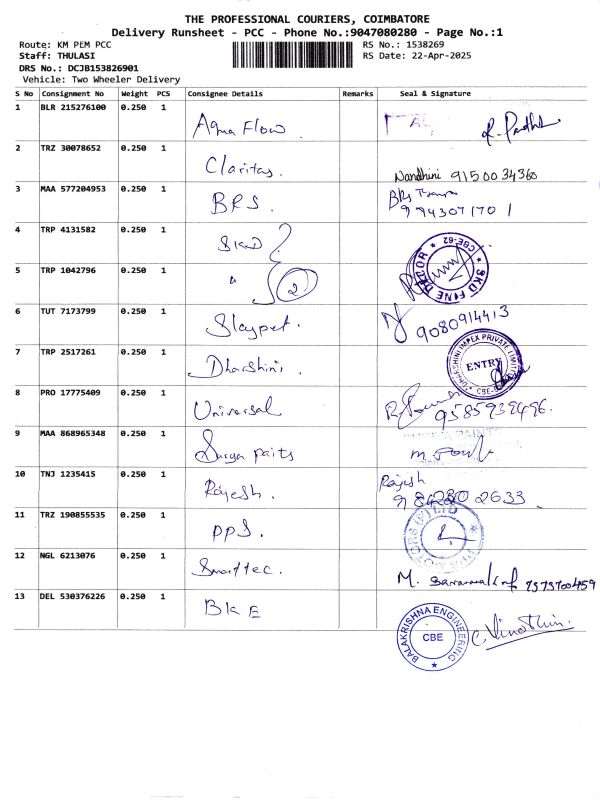 THE PROFESSIONAL COURIERS, COIMBATORE
Delivery Runsheet - PCC - Phone No.:9047080280 - Page No.:1
Route: KM PEM PCC RS No.: 1538269
Staff: THULASI RS Date: 22-Apr-2025
DRS No.: DCJB153826901
Vehicle: Two Wheeler Delivery
S No Consignment No Weight PCS Consignee Details Remarks Seal & Signature
1 BLR 215276100 0.250 1 Aqua Flow
2 TRZ 30078652 0.250 1 Claritas. Nandhini 9150034360
3 MAA 577204953 0.250 1 BRS. BRS
9943071701
4 TRP 4131582 0.250 1 SKD SKD FINE DECOR CBE-62
5 TRP 1042796 0.250 1 " 2
6 TUT 7173799 0.250 1 9080914413
7 TRP 2517261 0.250 1 Dharshini. IMPEX PRIVATE LIMITED ENTRY CBE
8 PRO 17775409 0.250 1 Universal
9 MAA 868965348 0.250 1 Surya paits
10 TNJ 1235415 0.250 1 Rajesh. Rajesh
11 TRZ 190855535 0.250 1 PPS. MOTORS (P) LTD
12 NGL 6213076 0.250 1 Smarttec. M.
13 DEL 530376226 0.250 1 BKE BALAKRISHNA ENGINEERING CBE C. Vinothini.